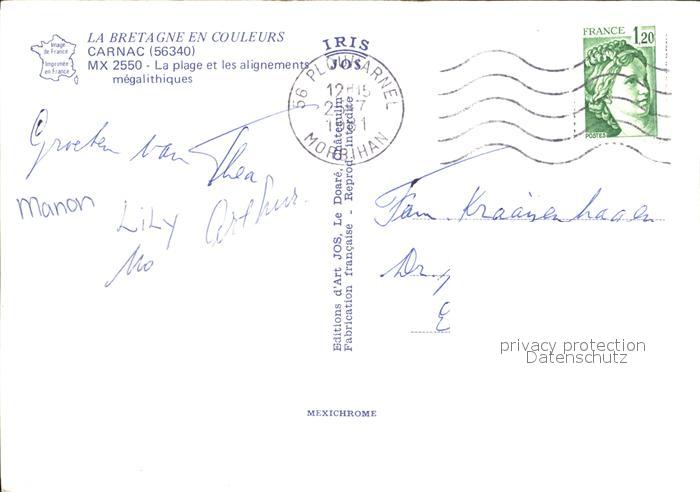 Image
de France
Imprimée
en France
LA BRETAGNE EN COULEURS
CARNAC (56340)
MX 2550 - La plage et les alignements
mégalithiques
IRIS
JOS
56 PLOUHARNEL
12H15
1981
MORBIHAN
FRANCE
1,20
POSTES
Groeten van Thea
Manon
LiLY Arthur.
Editions d'Art JOS, Le Doaré, Châteaulin
Fabrication française - Reprod. interdite
Fam. Kraaijenhagen
privacy protection
Datenschutz
MEXICHROME